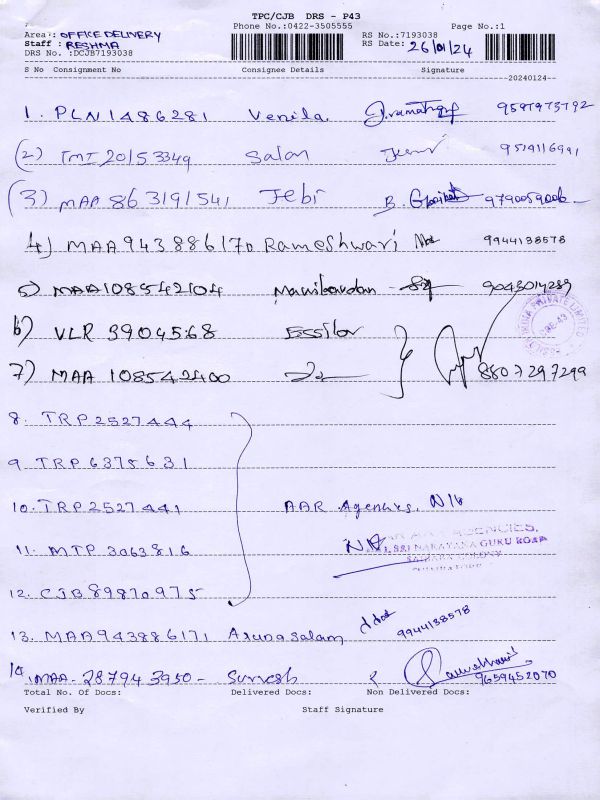 TPC/CJB DRS - P43
Phone No.:0422-3505555
Page No.:1
Area : OFFICE DELIVERY
Staff : RESHMA
DRS No. :DCJB7193038
RS No.:7193038
RS Date: 26/01/24
S No Consignment No Consignee Details Signature
20240124
1. PLN1486281 Venila 9597973792
(2) TMT 20153349 Salan 9519116991
(3) MAA 863191541 Jebi B. 9790059006
4) MAA943886170 Rameshwari 9944138578
5) MAA108542104 Manibardan 9043014289
6) VLR 3904568 Essilor
7) MAA 108542400 8807297299
8. TRP2527444
9. TRP6375631
10. TRP2527441 AAR Agencies, N/6
11. MTP 3063816
AGENCIES,
SRI NARAYANA GURU ROAD
SAIBABA COLONY
12. CJB89870975
13. MAA943886171 Arunasalam 9944138578
14. MAA-287943950- Suresh 9659452070
Total No. Of Docs: Delivered Docs: Non Delivered Docs:
Verified By Staff Signature